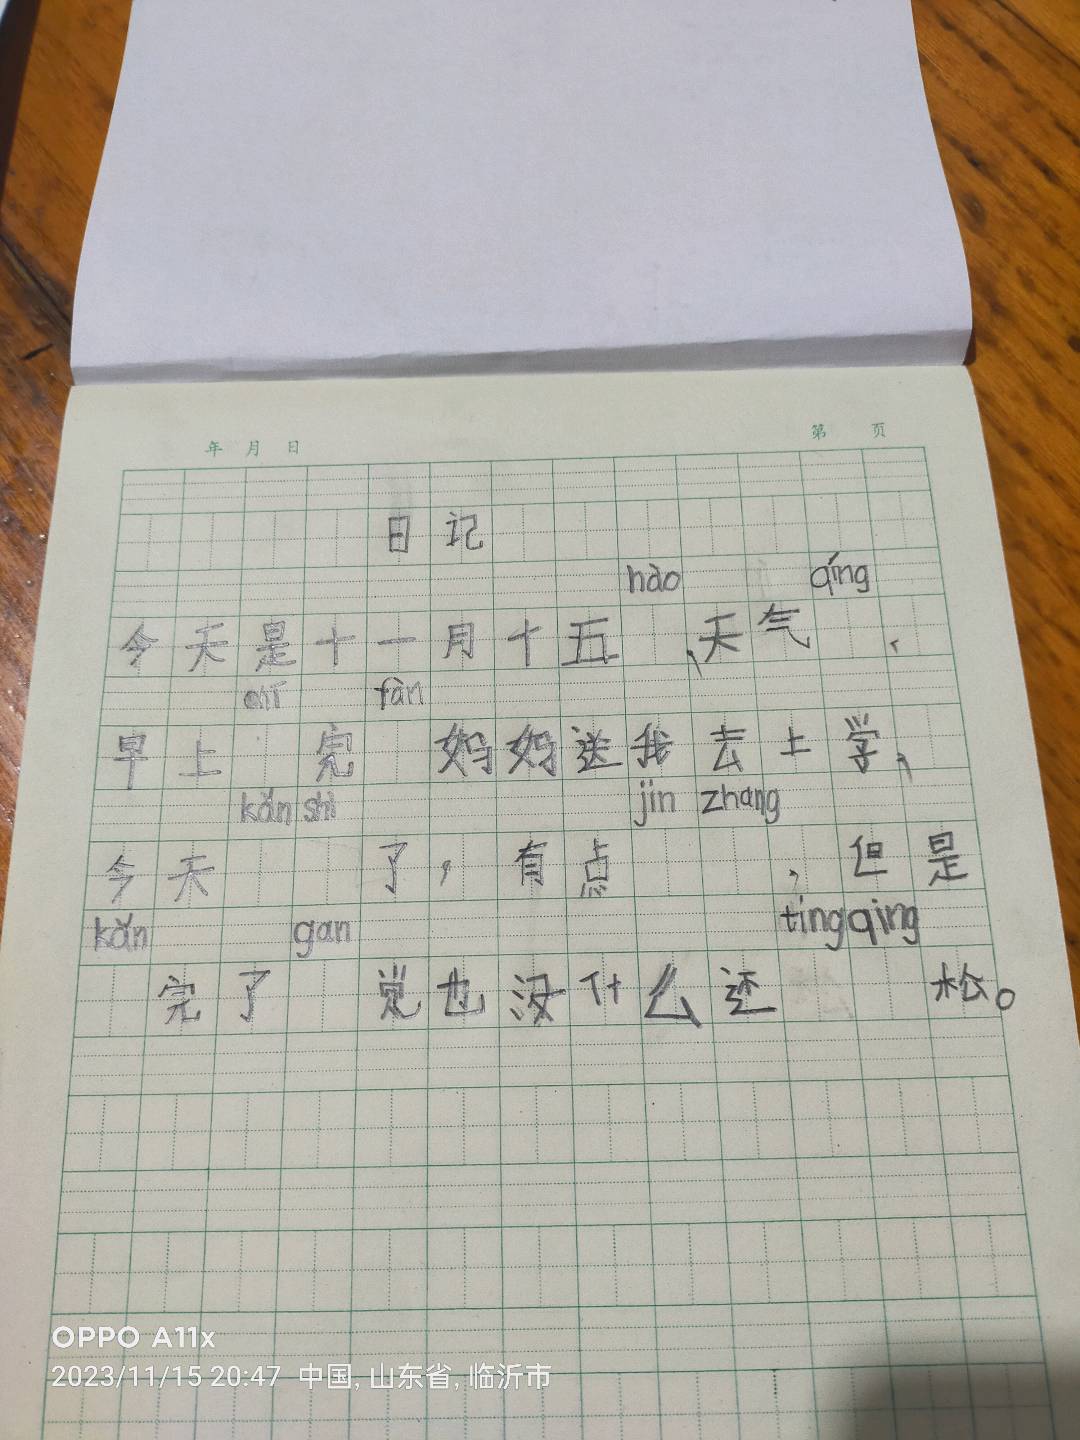 年 月 日 第 页
日记
hào qíng
今天是十一月十五 、天气 ，
chī fàn
早上 完 妈妈送我去上学、
kǎn shì jǐn zhang
今天 了，有点 ，但是
kǎn gan tǐng qing
完了 觉也没什么还 松。
OPPO A11x
2023/11/15 20:47 中国, 山东省, 临沂市